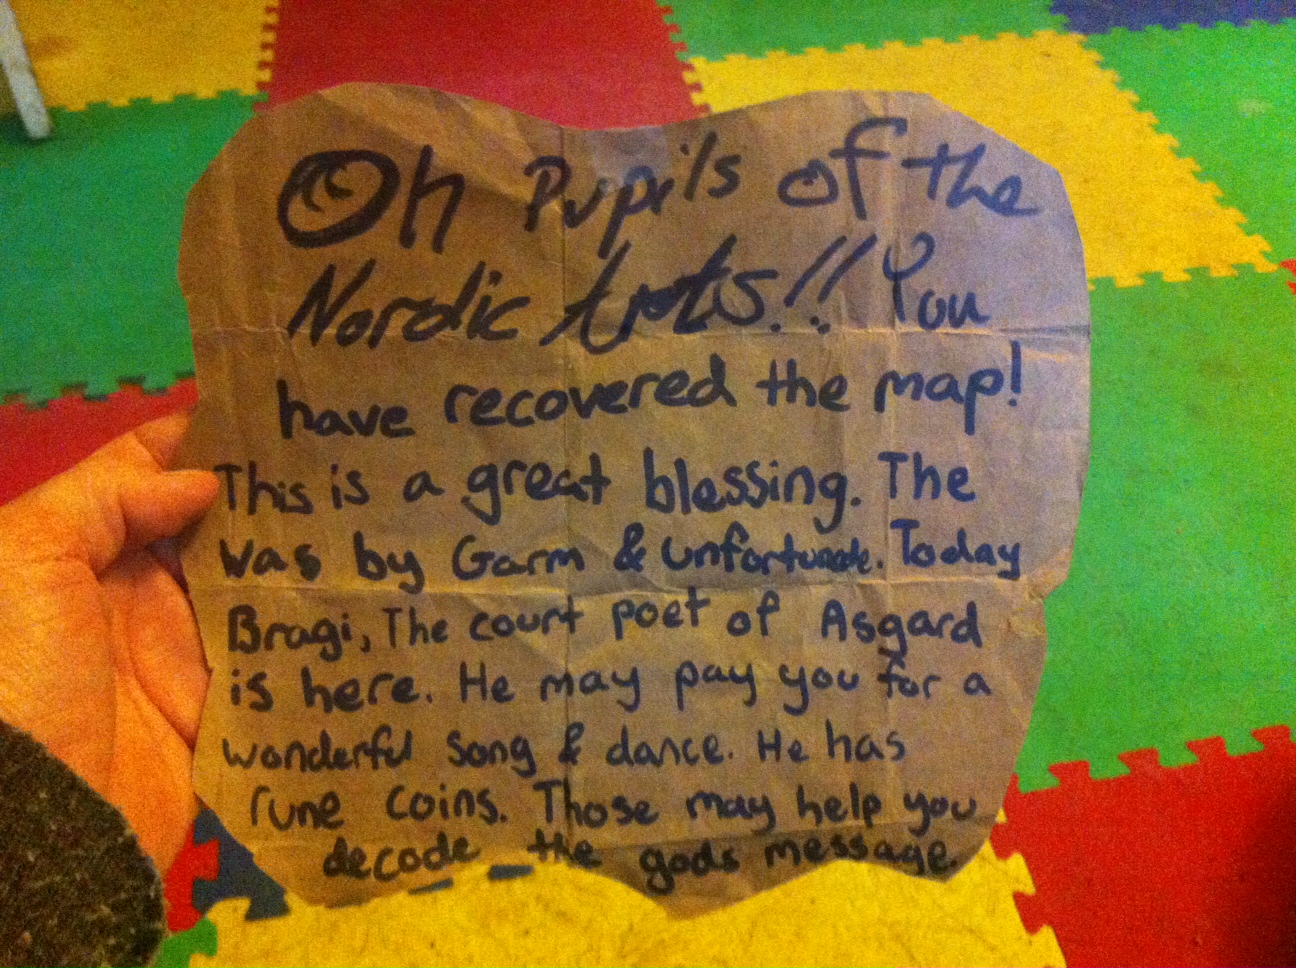 Oh Pupils of the
Nordic Arts!! You
have recovered the map!
This is a great blessing. The
was by Garm & unfortunate. Today
Bragi, The court poet of Asgard
is here. He may pay you for a
wonderful song & dance. He has
rune coins. Those may help you
decode the gods message.